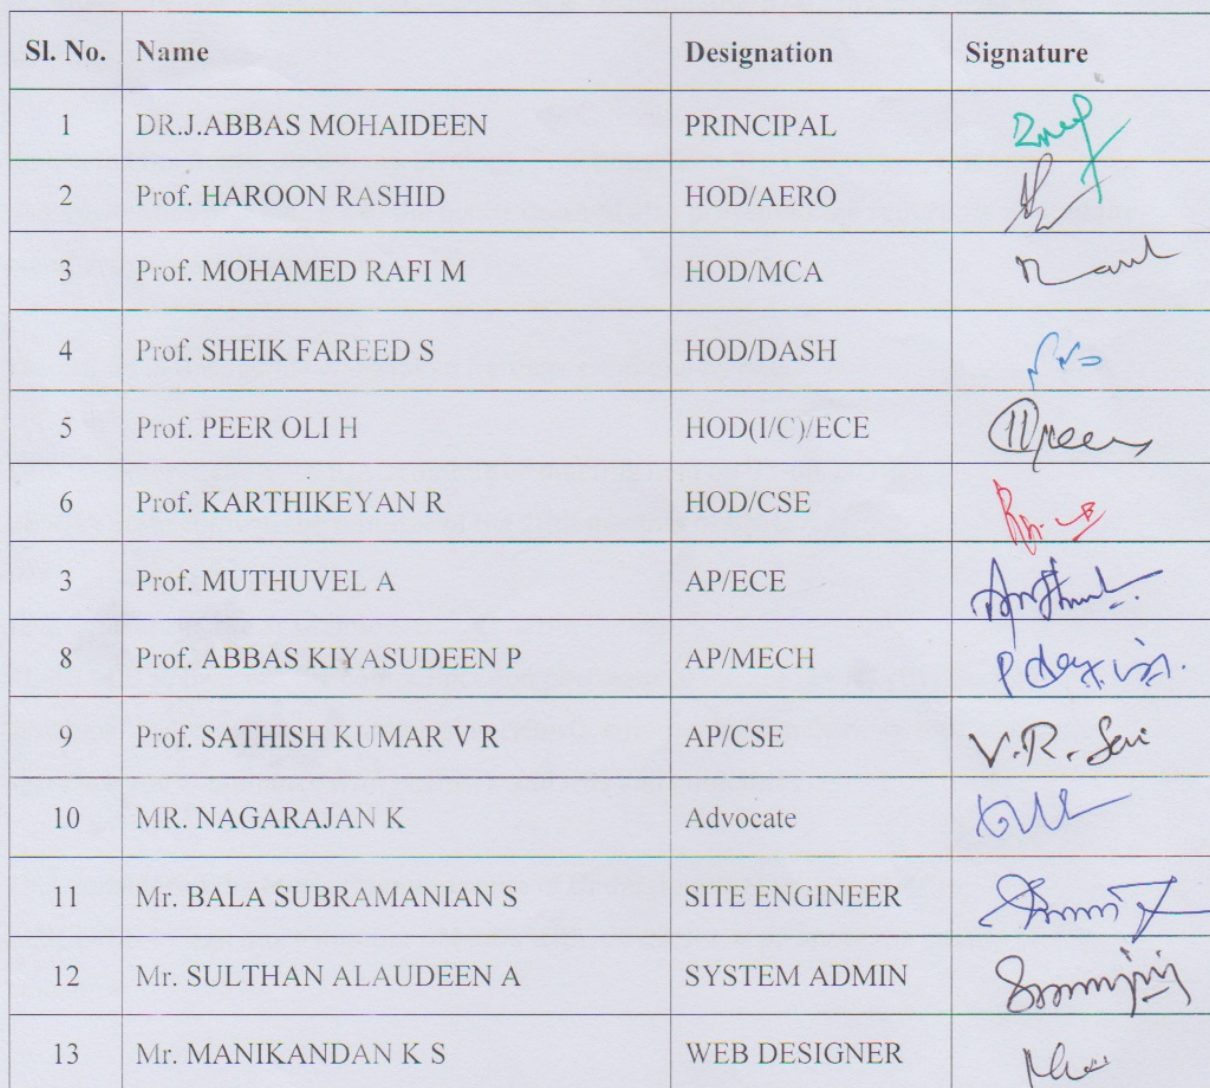 Sl. No. Name Designation Signature
1 DR.J.ABBAS MOHAIDEEN PRINCIPAL
2 Prof. HAROON RASHID HOD/AERO
3 Prof. MOHAMED RAFI M HOD/MCA
4 Prof. SHEIK FAREED S HOD/DASH
5 Prof. PEER OLI H HOD(I/C)/ECE
6 Prof. KARTHIKEYAN R HOD/CSE
3 Prof. MUTHUVEL A AP/ECE
8 Prof. ABBAS KIYASUDEEN P AP/MECH
9 Prof. SATHISH KUMAR V R AP/CSE V.R.
10 MR. NAGARAJAN K Advocate
11 Mr. BALA SUBRAMANIAN S SITE ENGINEER
12 Mr. SULTHAN ALAUDEEN A SYSTEM ADMIN
13 Mr. MANIKANDAN K S WEB DESIGNER